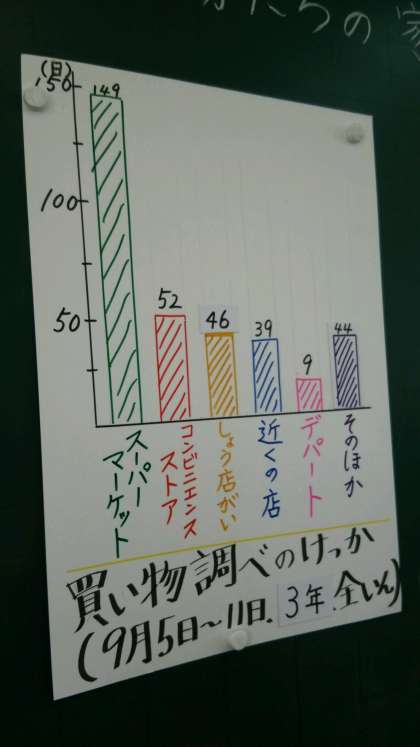 たちの
(日)
150
100
50
149
52
46
39
9
44
スーパーマーケット
コンビニエンスストア
しょう店がい
近くの店
デパート
そのほか
買い物調べのけっか
(9月5日～11日.3年.全いん)